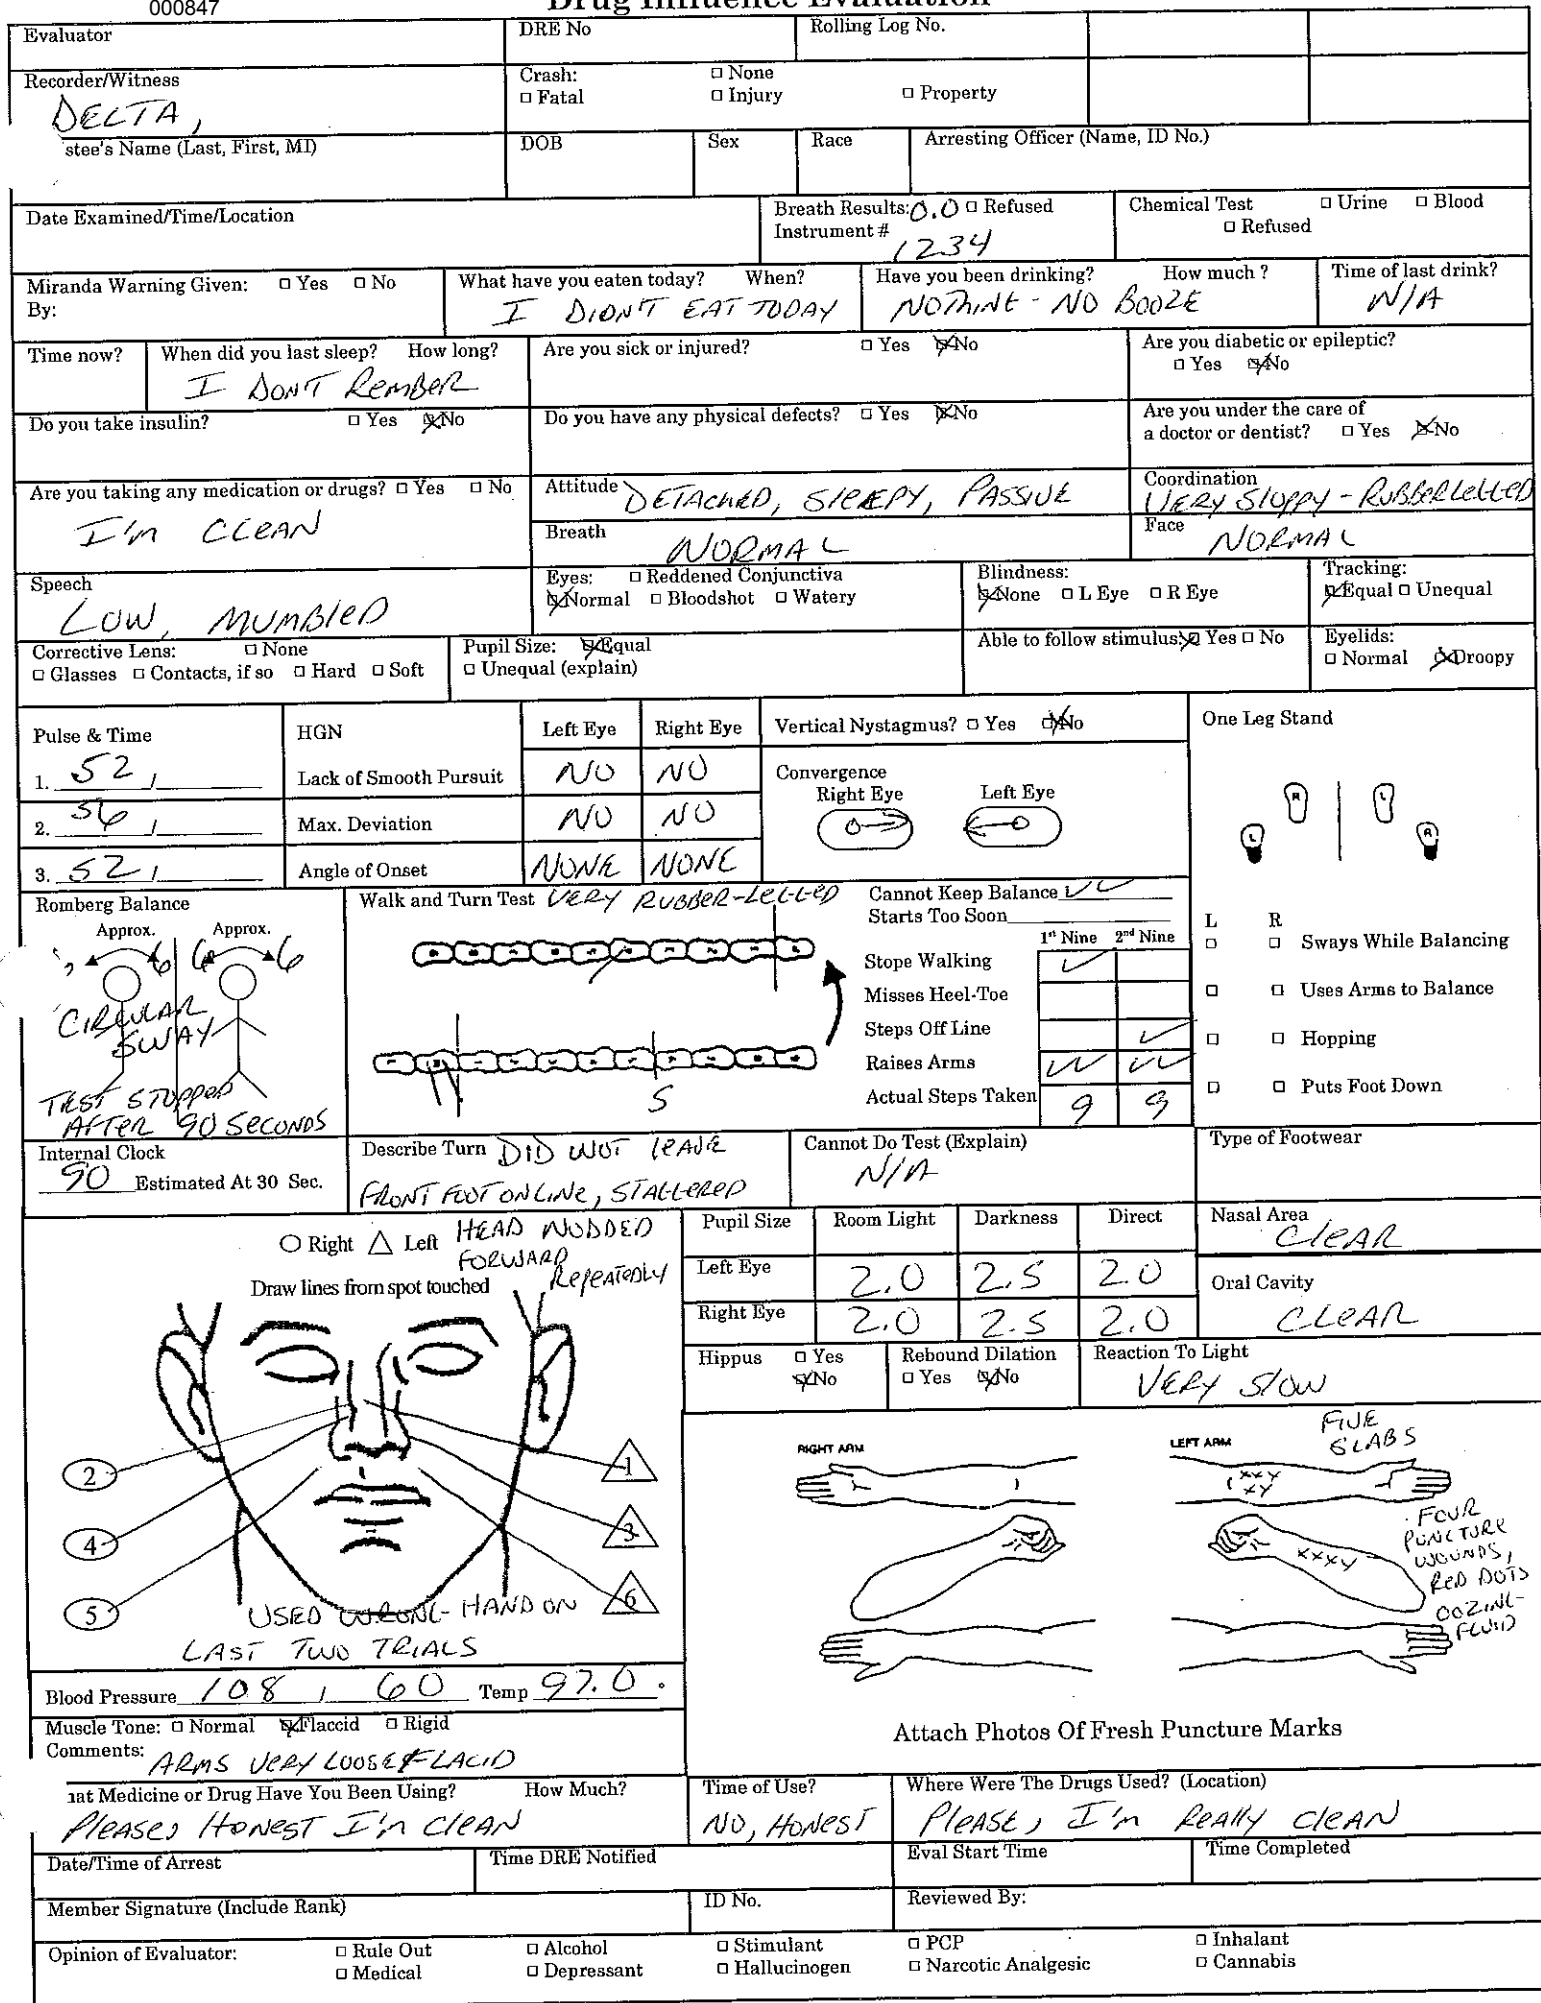 000847
Drug Influence Evaluation
Evaluator
DRE No
Rolling Log No.
Recorder/Witness
DELTA,
Crash:
□ None
□ Fatal
□ Injury
□ Property
stee's Name (Last, First, MI)
DOB
Sex
Race
Arresting Officer (Name, ID No.)
Date Examined/Time/Location
Breath Results: 0.0 □ Refused
Instrument #
1234
Chemical Test □ Urine □ Blood
□ Refused
Miranda Warning Given: □ Yes □ No
By:
What have you eaten today? When?
I DIDN'T EAT TODAY
Have you been drinking? How much ?
NOTHING - NO BOOZE
Time of last drink?
N/A
Time now?
When did you last sleep? How long?
I DON'T REMBER
Are you sick or injured? □ Yes ☒ No
Are you diabetic or epileptic?
□ Yes ☒ No
Do you take insulin? □ Yes ☒ No
Do you have any physical defects? □ Yes ☒ No
Are you under the care of
a doctor or dentist? □ Yes ☒ No
Are you taking any medication or drugs? □ Yes □ No
I'm CLEAN
Attitude DETACHED, SLEEPY, PASSIVE
Coordination
VERY SLOPPY - RUBBERLEGGED
Breath
NORMAL
Face
NORMAL
Speech
LOW, MUMBLED
Eyes: □ Reddened Conjunctiva
☒ Normal □ Bloodshot □ Watery
Blindness:
☒ None □ L Eye □ R Eye
Tracking:
☒ Equal □ Unequal
Corrective Lens: □ None
□ Glasses □ Contacts, if so □ Hard □ Soft
Pupil Size: ☒ Equal
□ Unequal (explain)
Able to follow stimulus: ☒ Yes □ No
Eyelids:
□ Normal ☒ Droopy
Pulse & Time
1. 52 /
2. 56 /
3. 52 /
HGN
Left Eye
Right Eye
Lack of Smooth Pursuit NO NO
Max. Deviation NO NO
Angle of Onset NONE NONE
Vertical Nystagmus? □ Yes ☒ No
Convergence
Right Eye
Left Eye
One Leg Stand
R L
L R
Romberg Balance
Approx. Approx.
6 6 6
CIRCULAR
SWAY
TEST STOPPED
AFTER 90 SECONDS
Walk and Turn Test VERY RUBBER-LEGGED
S
Cannot Keep Balance ✓✓
Starts Too Soon
1st Nine 2nd Nine
Stope Walking ✓
Misses Heel-Toe
Steps Off Line ✓
Raises Arms ✓✓ ✓✓
Actual Steps Taken 9 9
L R
□ □ Sways While Balancing
□ □ Uses Arms to Balance
□ □ Hopping
□ □ Puts Foot Down
Internal Clock
90 Estimated At 30 Sec.
Describe Turn DID NOT LEAVE
FRONT FOOT ON LINE, STAGGERED
Cannot Do Test (Explain)
N/A
Type of Footwear
○ Right △ Left
HEAD NODDED
FORWARD
REPEATEDLY
Draw lines from spot touched
2
1
4
3
5
6
USED WRONG HAND ON
LAST TWO TRIALS
Pupil Size Room Light Darkness Direct
Left Eye 2.0 2.5 2.0
Right Eye 2.0 2.5 2.0
Nasal Area
CLEAR
Oral Cavity
CLEAR
Hippus □ Yes
☒ No
Rebound Dilation
□ Yes ☒ No
Reaction To Light
VERY SLOW
RIGHT ARM
LEFT ARM
FIVE
SCABS
XXX
XX
XXXX
FOUR
PUNCTURE
WOUNDS,
RED DOTS
OOZING
FLUID
Attach Photos Of Fresh Puncture Marks
Blood Pressure 108 / 60 Temp 97.0 °
Muscle Tone: □ Normal ☒ Flaccid □ Rigid
Comments:
ARMS VERY LOOSE & FLACID
hat Medicine or Drug Have You Been Using? How Much?
PLEASE, HONEST I'm CLEAN
Time of Use?
NO, HONEST
Where Were The Drugs Used? (Location)
PLEASE, I'm REALLY CLEAN
Date/Time of Arrest
Time DRE Notified
Eval Start Time
Time Completed
Member Signature (Include Rank)
ID No.
Reviewed By:
Opinion of Evaluator:
□ Rule Out □ Alcohol □ Stimulant □ PCP □ Inhalant
□ Medical □ Depressant □ Hallucinogen □ Narcotic Analgesic □ Cannabis